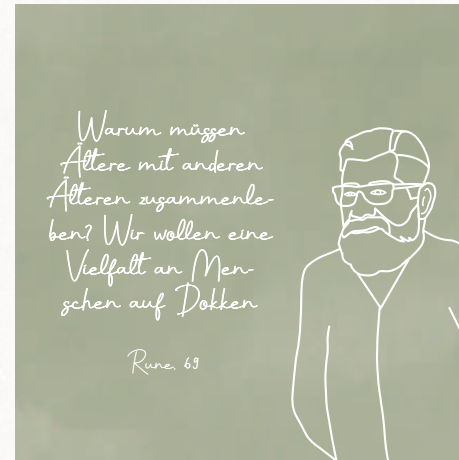 Warum müssen
Ältere mit anderen
Älteren zusammenle-
ben? Wir wollen eine
Vielfalt an Men-
schen auf Dokken
Rune, 69